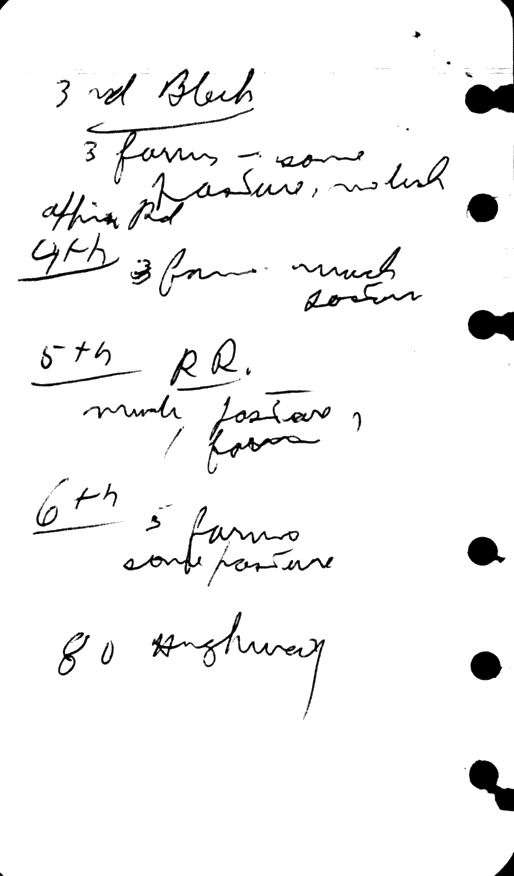 3 rd Block
3 farms - some
pasture, no
Rd
4th 3 farms much
pasture
5th RR.
much pasture,
1 farm
6th 5 farms
some pasture
80 Highway